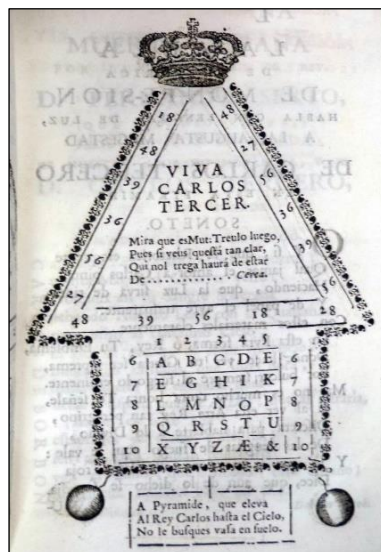 18
48
39
36
56
27
18
27
56
36
39
56
VIVA
CARLOS
TERCER.
Mira que es Mut: Treulo luego,
Pues si veus questá tan clar,
Qui nol trega haurá de estar
De ............ Cerea.
48 39 56 18 28
1 2 3 4 5
6 A B C D E 6
7 E G H I K 7
8 L M N O P 8
9 Q R S T U 9
10 X Y Z Æ & 10
A Pyramide, que eleva
Al Rey Carlos hasta el Cielo,
No le busques vasa en suelo.